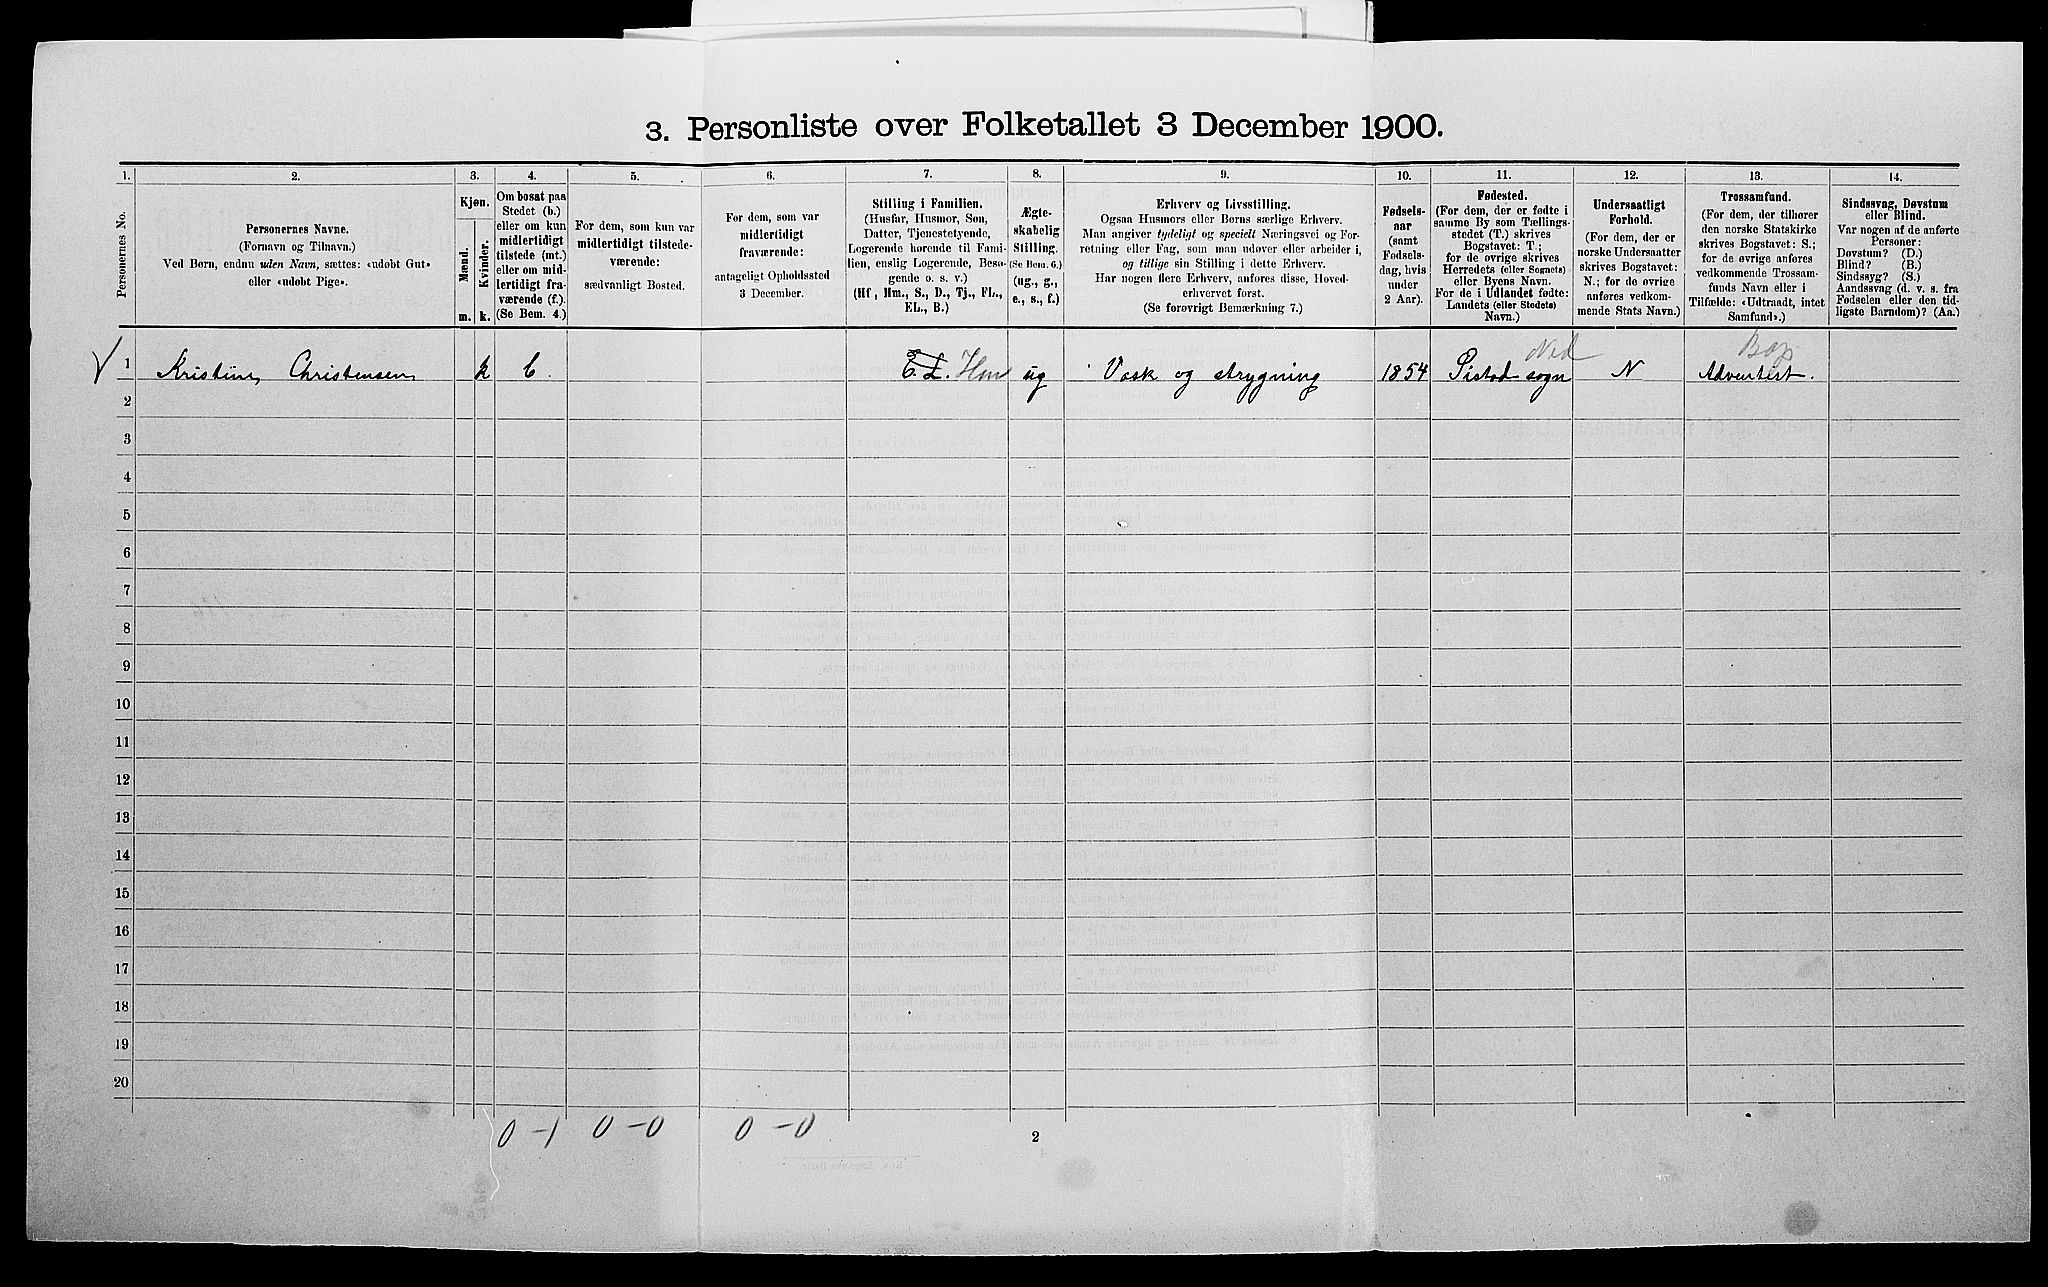 3. Personliste over Folketallet 3 December 1900.
1. 2. 3. 4. 5. 6. 7. 8. 9. 10. 11. 12. 13. 14.
Personernes No.
Personernes Navne.
(Fornavn og Tilnavn.)
Ved Børn, endnu uden Navn, sættes: «udøbt Gut»
eller «udøbt Pige».
Kjøn.
Mænd.
Kvinder.
m. k.
Om bosat paa
Stedet (b.)
eller om kun
midlertidigt
tilstede (mt.)
eller om mid-
lertidigt fra-
værende (f.).
(Se Bem. 4.)
For dem, som kun var
midlertidigt tilstede-
værende:
sædvanligt Bosted.
For dem, som var
midlertidigt
fraværende:
antageligt Opholdssted
3 December.
Stilling i Familien.
(Husfar, Husmor, Søn,
Datter, Tjenestetyende,
Logerende hørende til Fami-
lien, enslig Logerende, Besø-
gende o. s. v.)
(Hf, Hm., S., D., Tj., FL.,
EL., B.)
Ægte-
skabelig
Stilling.
(Se Bem. 6.)
(ug., g.,
e., s., f.)
Erhverv og Livsstilling.
Ogsaa Husmors eller Børns særlige Erhverv.
Man angiver tydeligt og specielt Næringsvei og For-
retning eller Fag, som man udøver eller arbeider i,
og tillige sin Stilling i dette Erhverv.
Har nogen flere Erhverv, anføres disse, Hoved-
erhvervet først.
(Se forøvrigt Bemærkning 7.)
Fødsels-
aar
(samt
Fødsels-
dag, hvis
under
2 Aar).
Fødested.
(For dem, der er fødte i
samme By som Tællings-
stedet (T.) skrives
Bogstavet: T.;
for de øvrige skrives
Herredets (eller Sognets)
eller Byens Navn.
For de i Udlandet fødte:
Landets (eller Stedets)
Navn.)
Undersaatligt
Forhold.
(For dem, der er
norske Undersaatter
skrives Bogstavet:
N.; for de øvrige
anføres vedkom-
mende Stats Navn.)
Trossamfund.
(For dem, der tilhører
den norske Statskirke
skrives Bogstavet: S.;
for de øvrige anføres
vedkommende Trossam-
funds Navn eller i
Tilfælde: «Udtraadt, intet
Samfund».)
Sindssvag, Døvstum
eller Blind.
Var nogen af de anførte
Personer:
Døvstum? (D.)
Blind? (B.)
Sindssyg? (S.)
Aandssvag (d. v. s. fra
Fødselen eller den tid-
ligste Barndom)? (Aa.)
Ned Bap
1 Kristine Christensen k b. E. L. Hm ug Vask og strygning 1854 sogn N Adventist.
2
3
4
5
6
7
8
9
10
11
12
13
14
15
16
17
18
19
20
0-1 0-0 0-0
2